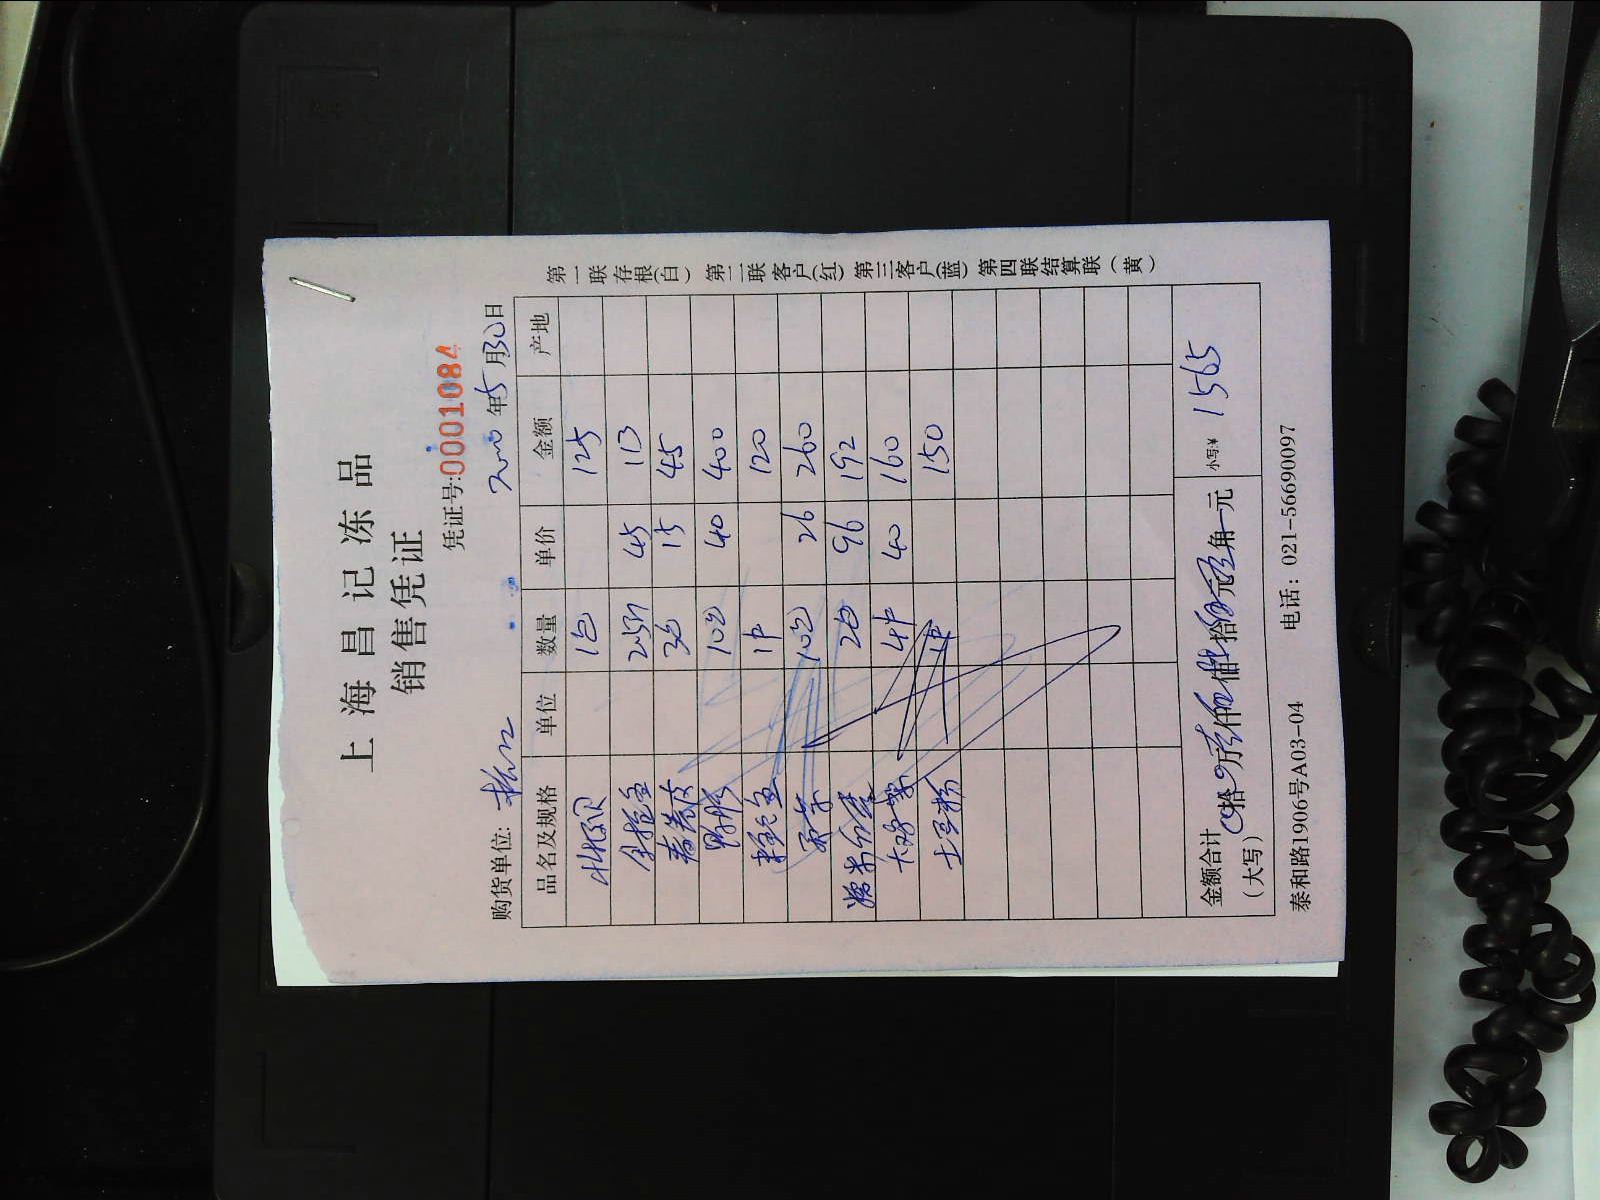 上海昌记冻品
销售凭证
凭证号:0001084
购货单位: 2020年5月30日
品名及规格 单位 数量 单价 金额 产地
北极贝 1包 125
金枪鱼 2.5斤 45 113
春卷皮 3包 15 45
鸭胗 10包 40 400
1中 120
10包 26 260
糯米 2包 96 192
4中 40 160
土豆粉 150
金额合计 拾 万 仟 佰 拾 元 角 元 小写:¥ 1565
(大写)
泰和路1906号A03-04 电话: 021-56690097
第一联存根(白) 第二联客户(红) 第三客户(蓝) 第四联结算联(黄)